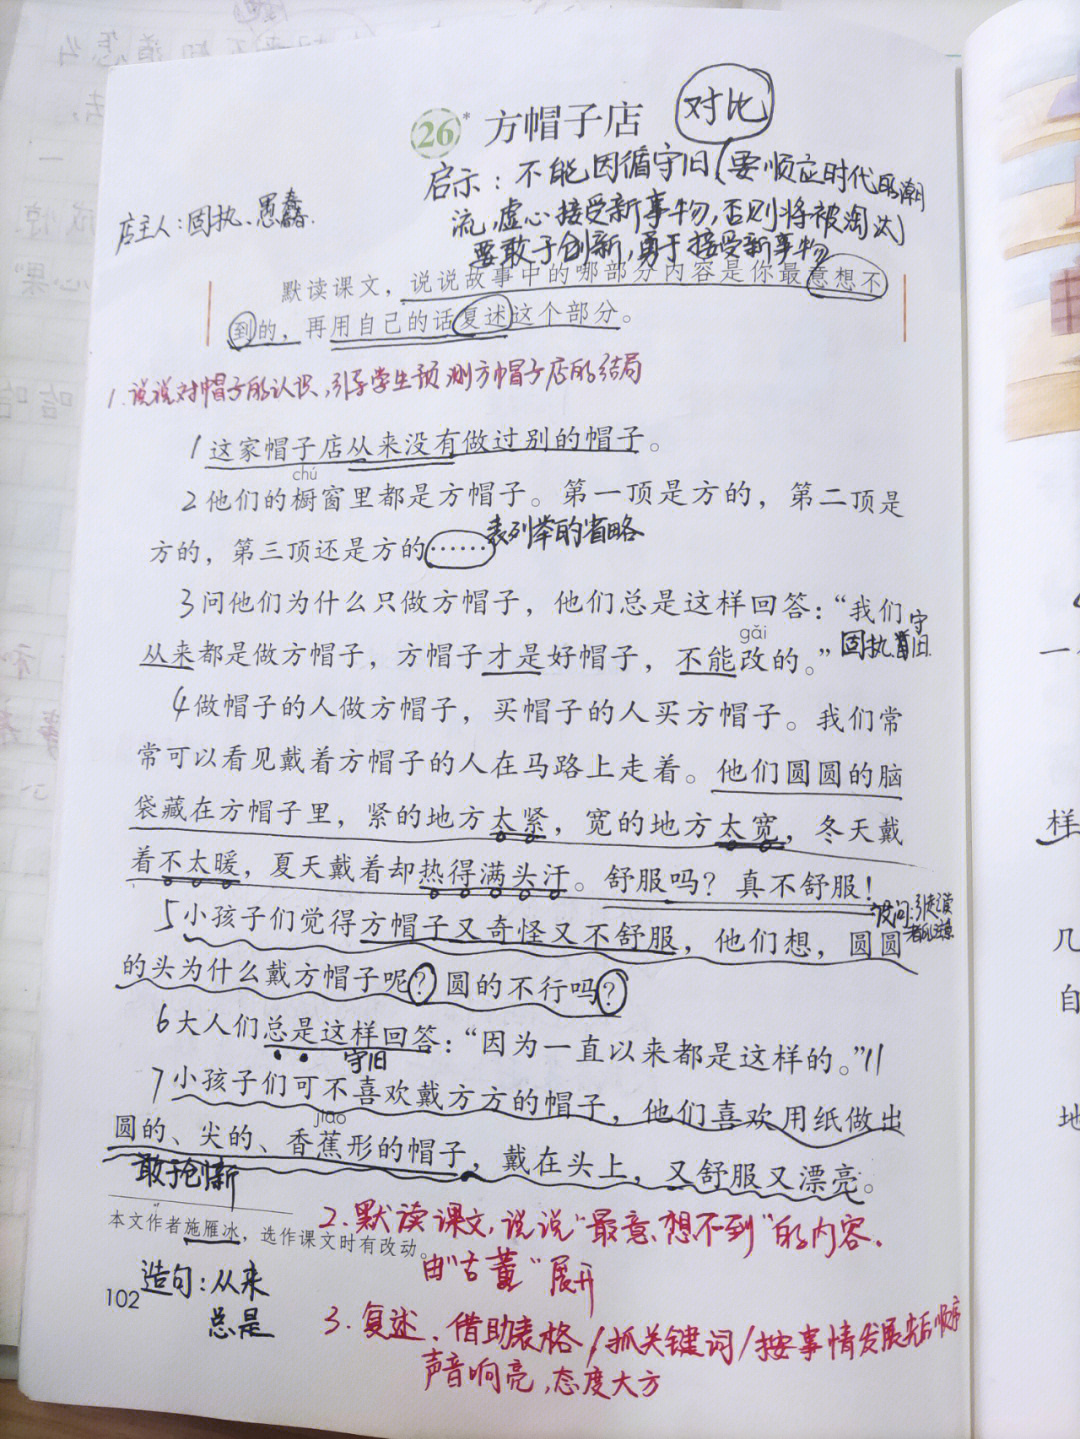 26* 方帽子店 对比
启示：不能因循守旧(要顺应时代的潮
流,虚心接受新事物,否则将被淘汰)
要敢于创新,勇于接受新事物
店主人:固执、愚蠢.
默读课文，说说故事中的哪部分内容是你最意想不
到的，再用自己的话复述这个部分。
1.说说对帽子的认识,引导学生预测方帽子店的结局
1 这家帽子店从来没有做过别的帽子。
chú
2 他们的橱窗里都是方帽子。第一顶是方的，第二顶是
方的，第三顶还是方的…… 表列举的省略
3 问他们为什么只做方帽子，他们总是这样回答：“我们
gǎi
从来都是做方帽子，方帽子才是好帽子，不能改的。” 固执 守旧
4 做帽子的人做方帽子，买帽子的人买方帽子。我们常
常可以看见戴着方帽子的人在马路上走着。他们圆圆的脑
袋藏在方帽子里，紧的地方太紧，宽的地方太宽，冬天戴
着不太暖，夏天戴着却热得满头汗。舒服吗？真不舒服！
设问:引起读
5 小孩子们觉得方帽子又奇怪又不舒服，他们想，圆圆
的头为什么戴方帽子呢？圆的不行吗？
6 大人们总是这样回答：“因为一直以来都是这样的。”
守旧
7 小孩子们可不喜欢戴方方的帽子，他们喜欢用纸做出
jiāo
圆的、尖的、香蕉形的帽子，戴在头上，又舒服又漂亮。
敢于创新
本文作者施雁冰，选作课文时有改动。
2.默读课文,说说“最意想不到”的内容.
由“古董”展开
造句:从来
总是
102
3.复述.借助表格/抓关键词/按事情发展先后顺序
声音响亮,态度大方
一
样
几
自
地